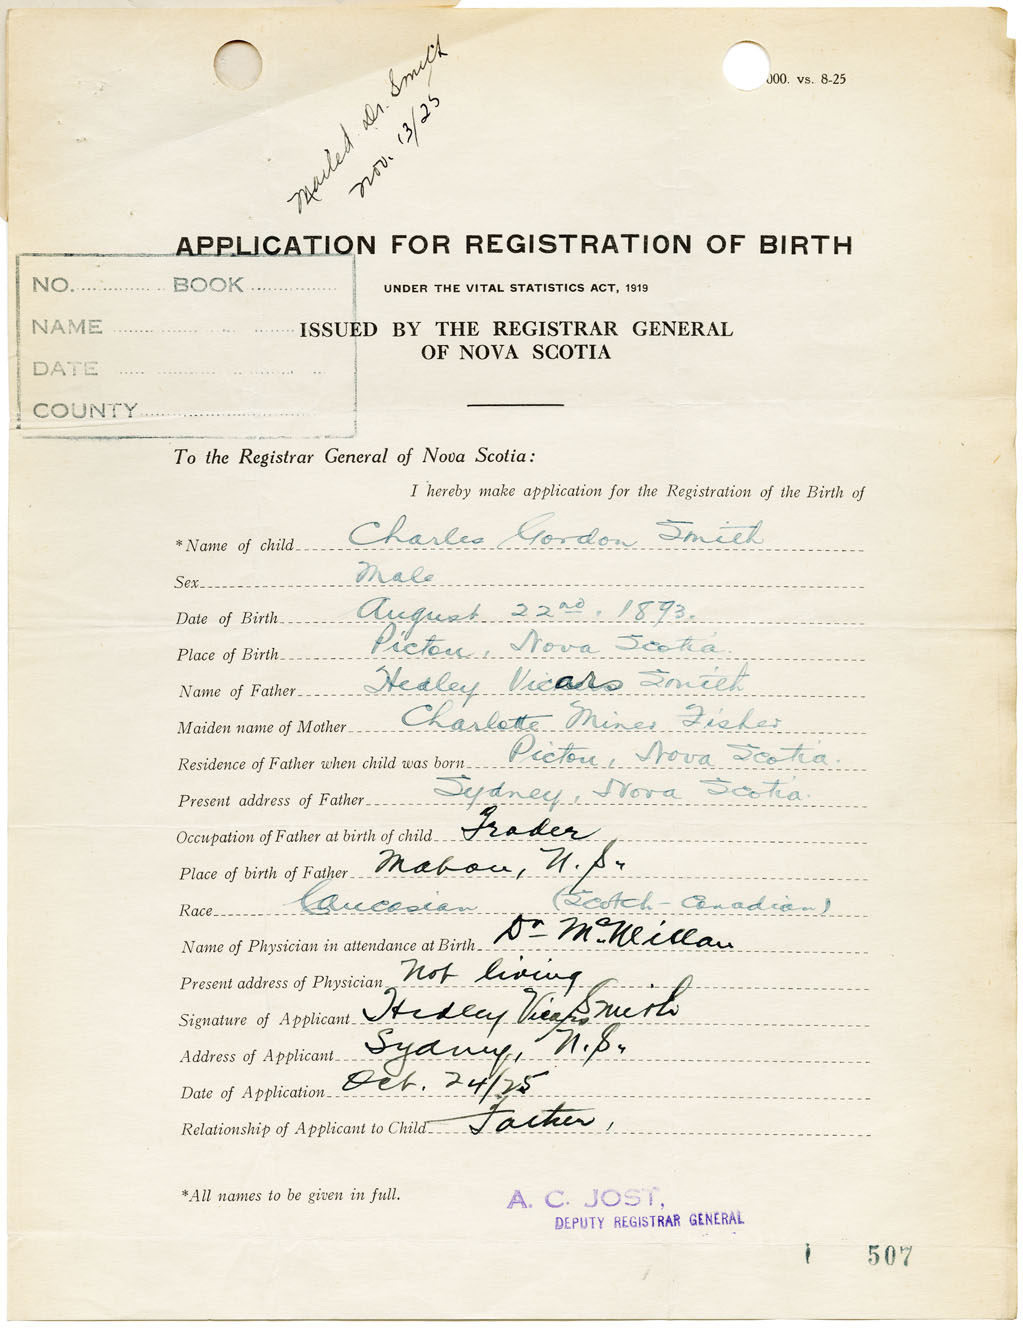 000. vs. 8-25
Mailed Dr. Smith
Nov. 13/25
APPLICATION FOR REGISTRATION OF BIRTH
UNDER THE VITAL STATISTICS ACT, 1919
ISSUED BY THE REGISTRAR GENERAL
OF NOVA SCOTIA
NO. BOOK
NAME
DATE
COUNTY
To the Registrar General of Nova Scotia:
I hereby make application for the Registration of the Birth of
*Name of child Charles Gordon Smith
Sex Male
Date of Birth August 22nd. 1893.
Place of Birth Pictou, Nova Scotia.
Name of Father Hedley Vicars Smith
Maiden name of Mother Charlotte Miner Fisher
Residence of Father when child was born Pictou, Nova Scotia.
Present address of Father Sydney, Nova Scotia.
Occupation of Father at birth of child Trader
Place of birth of Father Mabou, N.S.
Race Caucasian (Scotch-Canadian)
Name of Physician in attendance at Birth Dr McMillan
Present address of Physician Not living
Signature of Applicant Hedley Vicars Smith
Address of Applicant Sydney, N.S.
Date of Application Oct. 24/25
Relationship of Applicant to Child Father,
*All names to be given in full.
A. C. JOST,
DEPUTY REGISTRAR GENERAL
507